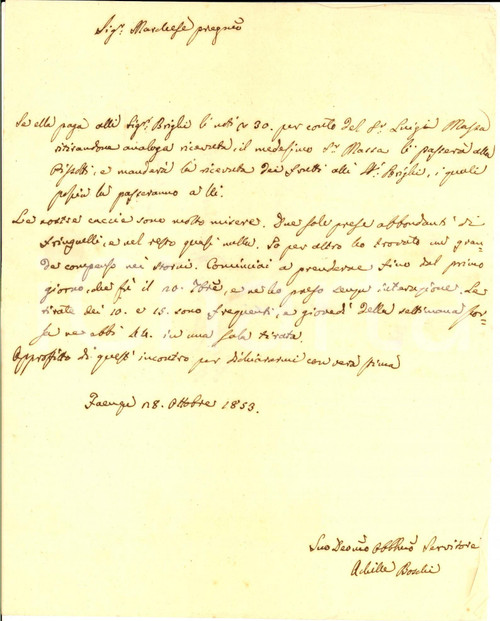 Sigr. Marchese pregmo
Se ella paga alli Sigri. Brighi li noti 30. per conto del Sr. Luigi Massa
ritirandone analoga ricevuta, il medesimo Sr. Massa li passerà alla
e manderà la ricevuta dei frutti alli Sri. Brighi, i quali
poscia la passeranno a lei.
Le nostre caccie sono molto misere. Due sole prese abbondanti di
fringuelli, e nel resto quasi nulla. Io per altro ho trovato un gran-
de compenso nei storni. Cominciai a prenderne fino dal primo
giorno, che fù il 20. 7bre, e ne ho preso senza interuzione. Le
tirate dei 10. e 15. sono frequenti, e giovedì della settimana scor-
sa ne ebbi 44. in una sola tirata.
Approfitto di quest' incontro per dichiararmi con vera stima
Faenza 28. Ottobre 1853.
Suo Devmo Obblmo Servitore
Achille Boschi